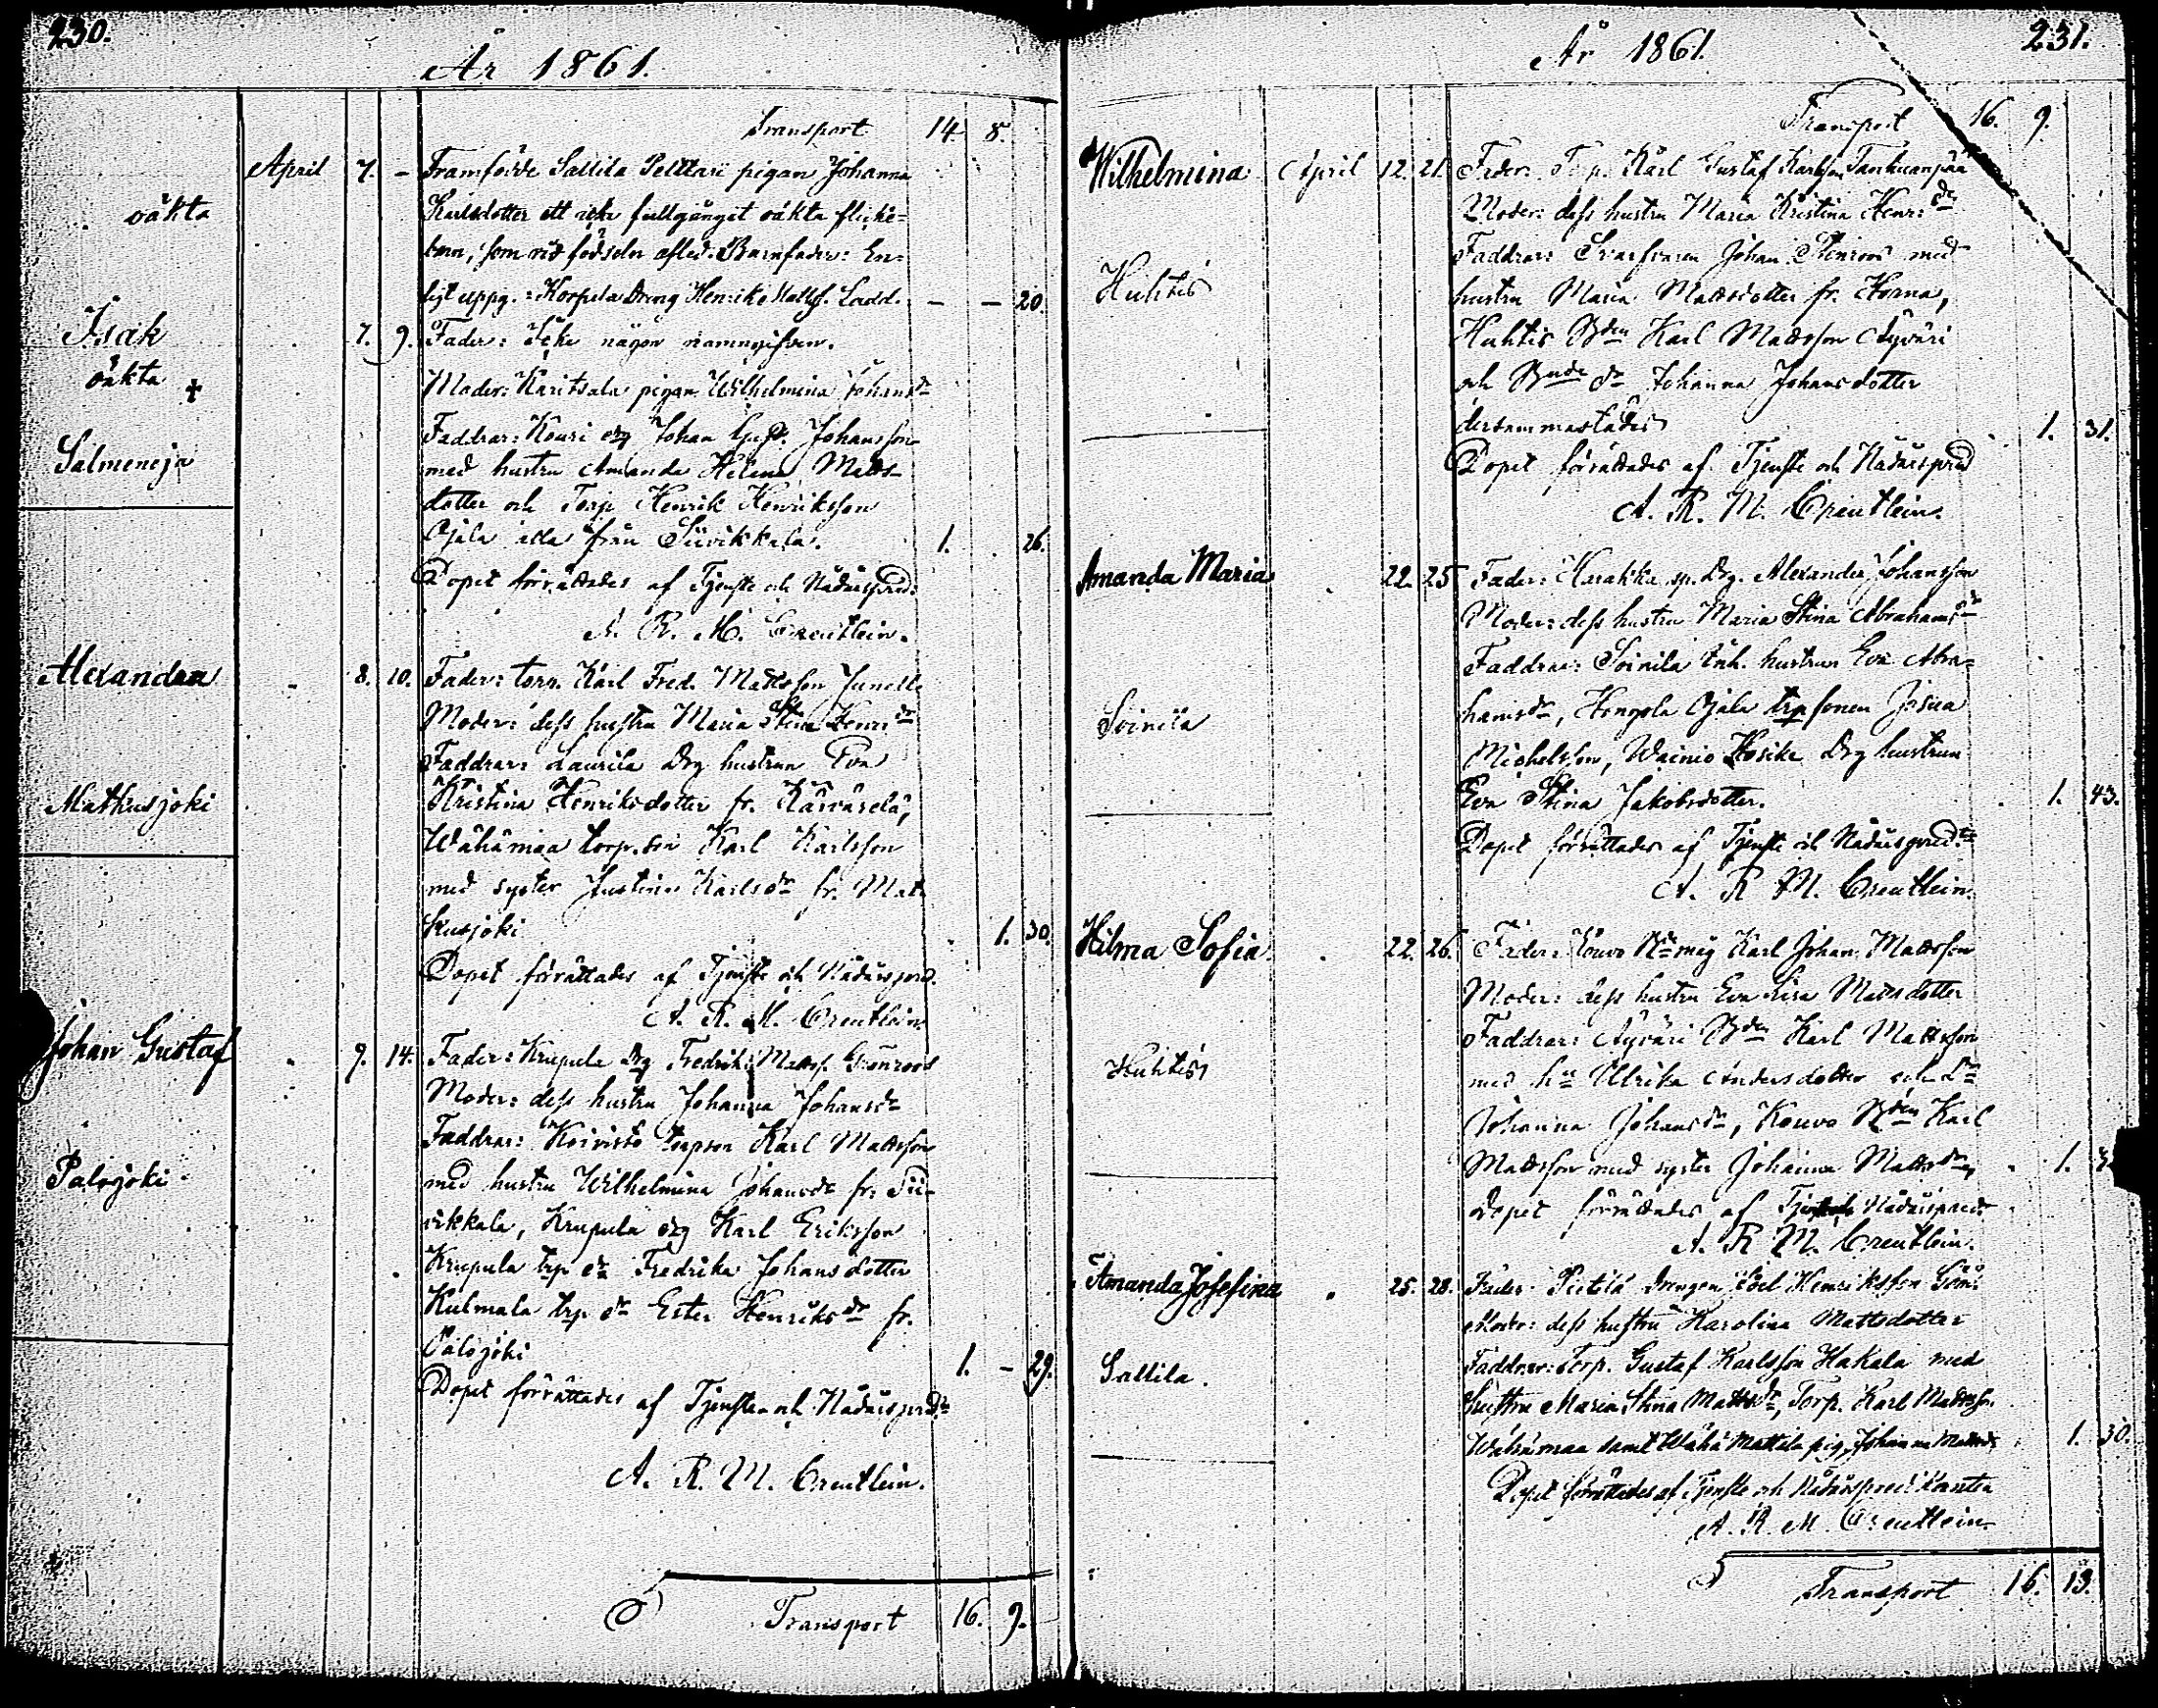 230.
År 1861.
Transport 14. 8.
April 7. - Framfödde Sallila Pelttari pigan Johanna
oäkta
Karlsdotter ett icke fullgånget oäkta flicke-
barn, som vid födseln afled. Barnfader: En-
ligt uppg.: Korpela Dreng Henrik Mattsf. Ladd. - - 20.
Isak 7. 9. Fader: Icke någon namngifven.
oäkta +
Moder: Karitsala pigan Wilhelmina Johansdr
Faddrar: Kouri drg Johan Gust. Johansson
Salmeneja
med hustru Amanda Helena Matts-
dotter och Torp. Henrik Henriksson
Ojala alla från Sievikkala. 1. 26.
Dopet förrättades af Tjenste och Nådårspred.
A. R. M. Creutlein.
Alexandra 8. 10. Fader: torp. Karl Fred. Mattsson Junell
Moder: dess hustru Maria Stina Henrdr
Faddrar: Laurila Drg hustrun Eva
Kristina Henriksdotter fr.
Matkusjoki
Wähämaa torp.son Karl Karlsson
med syster Justina Karlsdr fr. Mat-
kusjoki 1. 30.
Dopet förrättades af Tjenste och Nådårspred.
A. R. M. Creutlein
Johan Gustaf 9. 14. Fader: Krupula Drg Fredrik Mattsf. Grönroos
Moder: dess hustru Johanna Johansdr
Faddrar: Koivisto torpson Karl Mattsson
Palojoki
med hustru Wilhelmina Johansdr fr. Sie-
vikkala, Krupula drg Karl Eriksson
Krupula trp dr Fredrika Johansdotter
Kulmala trp dr Ester Henriksdr fr.
Palojoki 1. - 29.
Dopet förrättades af Tjenste och Nådårspred.
A. R. M. Creutlein.
Transport 16. 9.
231.
År 1861.
Transport 16. 9.
Wilhelmina April 12. 21. Fader: Torp. Karl Gustaf Karlsson Tankuanpää
Moder: dess hustru Maria Kristina Henr:dr
Faddrar: Johan Stenroos med
Huhtis
hustru Maria Mattsdotter fr. Horna,
Huhtis Bden Karl Mattsson Äyväri
och Bnde dr Johanna Johansdotter
dersammastädes 1. 31.
Dopet förrättades af Tjenste och Nådårspred
A. R. M. Creutlein.
Amanda Maria 22. 25 Fader: Harakka sp. Drg. Alexander Johansson
Moder: dess hustru Maria Stina Abrahamsdr
Faddrar: Soinila Inh. hustrun Eva Abra-
Soinila
hamsdr, Hongola Ojala trpsonen Josua
Michelsson, Wainio Kosike Drg hustrun
Eva Stina Jakobsdotter. 1. 43.
Dopet förrättades af Tjenste och Nådårspred.
A. R. M. Creutlein.
Hilma Sofia 22. 26. Fader: Kouvo Karl Johan Mattsson
Moder: dess hustru Eva Lisa Mattsdotter
Faddrar: Äyväri Bden Karl Mattsson
Huhtis
med hu Ulrika Andersdotter och Dr
Johanna Johansdr, Kouvo Bden Karl
Mattsson med syster Johanna Mattsdr, 1.
Dopet förrättades af Nådårspred.
A. R. M. Creutlein.
Amanda Josefina 25. 28. Fader: Pietilä Drengen Joel Henriksson
Moder: dess hustru Karolina Mattsdotter
Faddrar: Torp. Gustaf Karlsson Hakala med
Sallila.
hustru Maria Stina Mattsdr, Torp. Karl Mattsson
Wähämaa samt Wähä Mattila pig. Johanna Mattsdr 1. 30.
Dopet förrättades af Tjenste och Nådårspredikanten
A. R. M. Creutlein
Transport 16. 13.